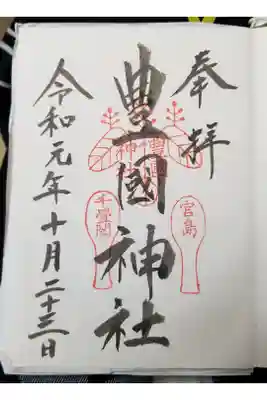 奉拝
宮島
豊國神社
豊國
神社
千畳閣
令和元年十月二十三日